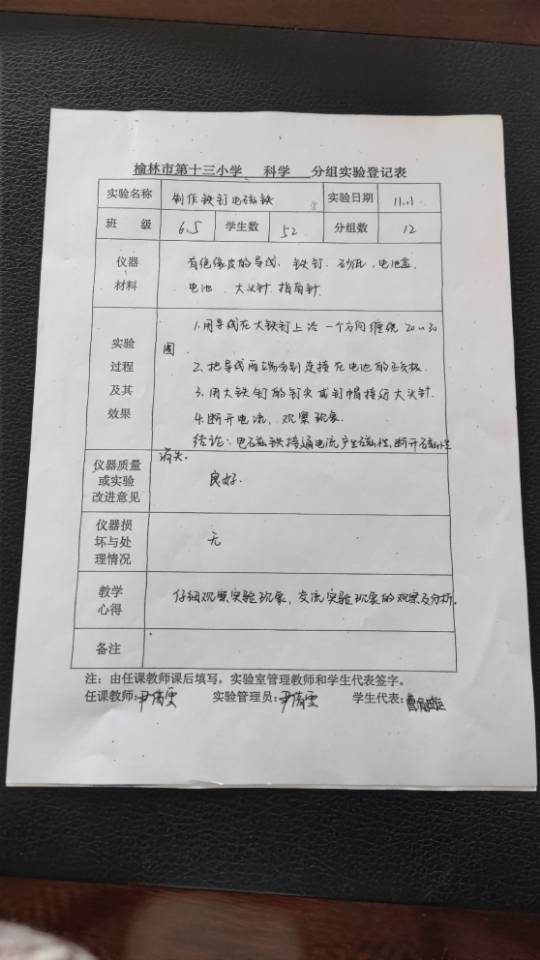 榆林市第十三小学 科学 分组实验登记表
实验名称 制作铁钉电磁铁 实验日期 11.1
班 级 6.5 学生数 52 分组数 12
仪器材料 有绝缘皮的导线、铁钉、砂纸、电池盒、
电池、大头针、指南针
实验过程及其效果 1.用导线在大铁钉上沿一个方向缠绕20~30
圈
2.把导线两端分别连接在电池的正负极.
3.用大铁钉的钉尖或钉帽接近大头针.
4.断开电流,观察现象.
结论:电磁铁接通电流产生磁性,断开磁性
消失.
仪器质量或实验改进意见 良好.
仪器损坏与处理情况 无
教学心得 仔细观察实验现象,交流实验现象的观察及分析.
备注
注:由任课教师课后填写,实验室管理教师和学生代表签字。
任课教师: 实验管理员: 学生代表: